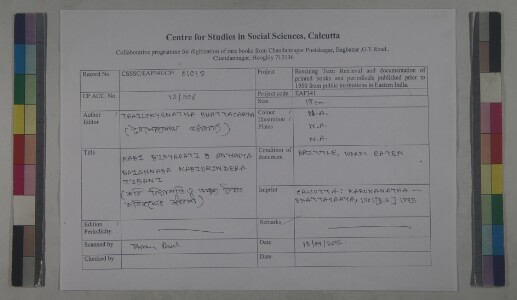 Centre for Studies in Social Sciences, Calcutta
Collaborative programme for digitization of rare books from Chandernagor Pustakagar, Bagbazar, G.T. Road,
Chandannagar, Hooghly 712136
Record No.
Project
Rescuing Text: Retrieval and documentation of
printed books and periodicals published prior to
1950 from public institutions in Eastern India.
CP ACC. No.
Project code
EAP341
Size
18 cm
Author
Editor
TRAILOKYANATHA BHATTACARYA
Colour
Illustration
Plates
N.A.
N.A.
N.A.
Title
KABI BIDYAPATI O ANYANYA
BAISHNABA KABIDRINDERA
JIBANI
Condition of
document
BRITTLE, WORM EATEN
Imprint
CALCUTTA: KARUNANATHA
BHATTACARYA,
Edition
Periodicity
Remarks
Scanned by
Date
Checked by
Date